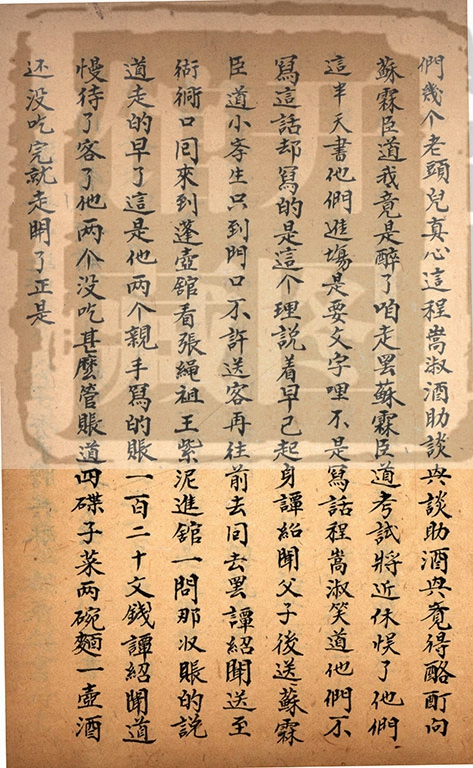 們幾个老頭兒真心這程嵩淑酒助談興談助酒興竟得酩酊向
蘇霖臣道我竟是醉了咱走罷蘇霖臣道考試將近休悞了他們
這半天書他們進塲是要文字哩不是寫話程嵩淑笑道他們不
寫這話却寫的是這个理説着早已起身譚紹聞父子後送蘇霖
臣道小孝生只到門口不許送客再往前去回去罷譚紹聞送至
衚衕口囘來到蓬壺舘看張繩祖王紫泥進舘一問那收賬的説
道走的早了這是他两个親手寫的賬一百二十文錢譚紹聞道
慢待了客了他两个没吃甚麽管賬道四碟子菜两碗麵一壺酒
还没吃完就走開了正是